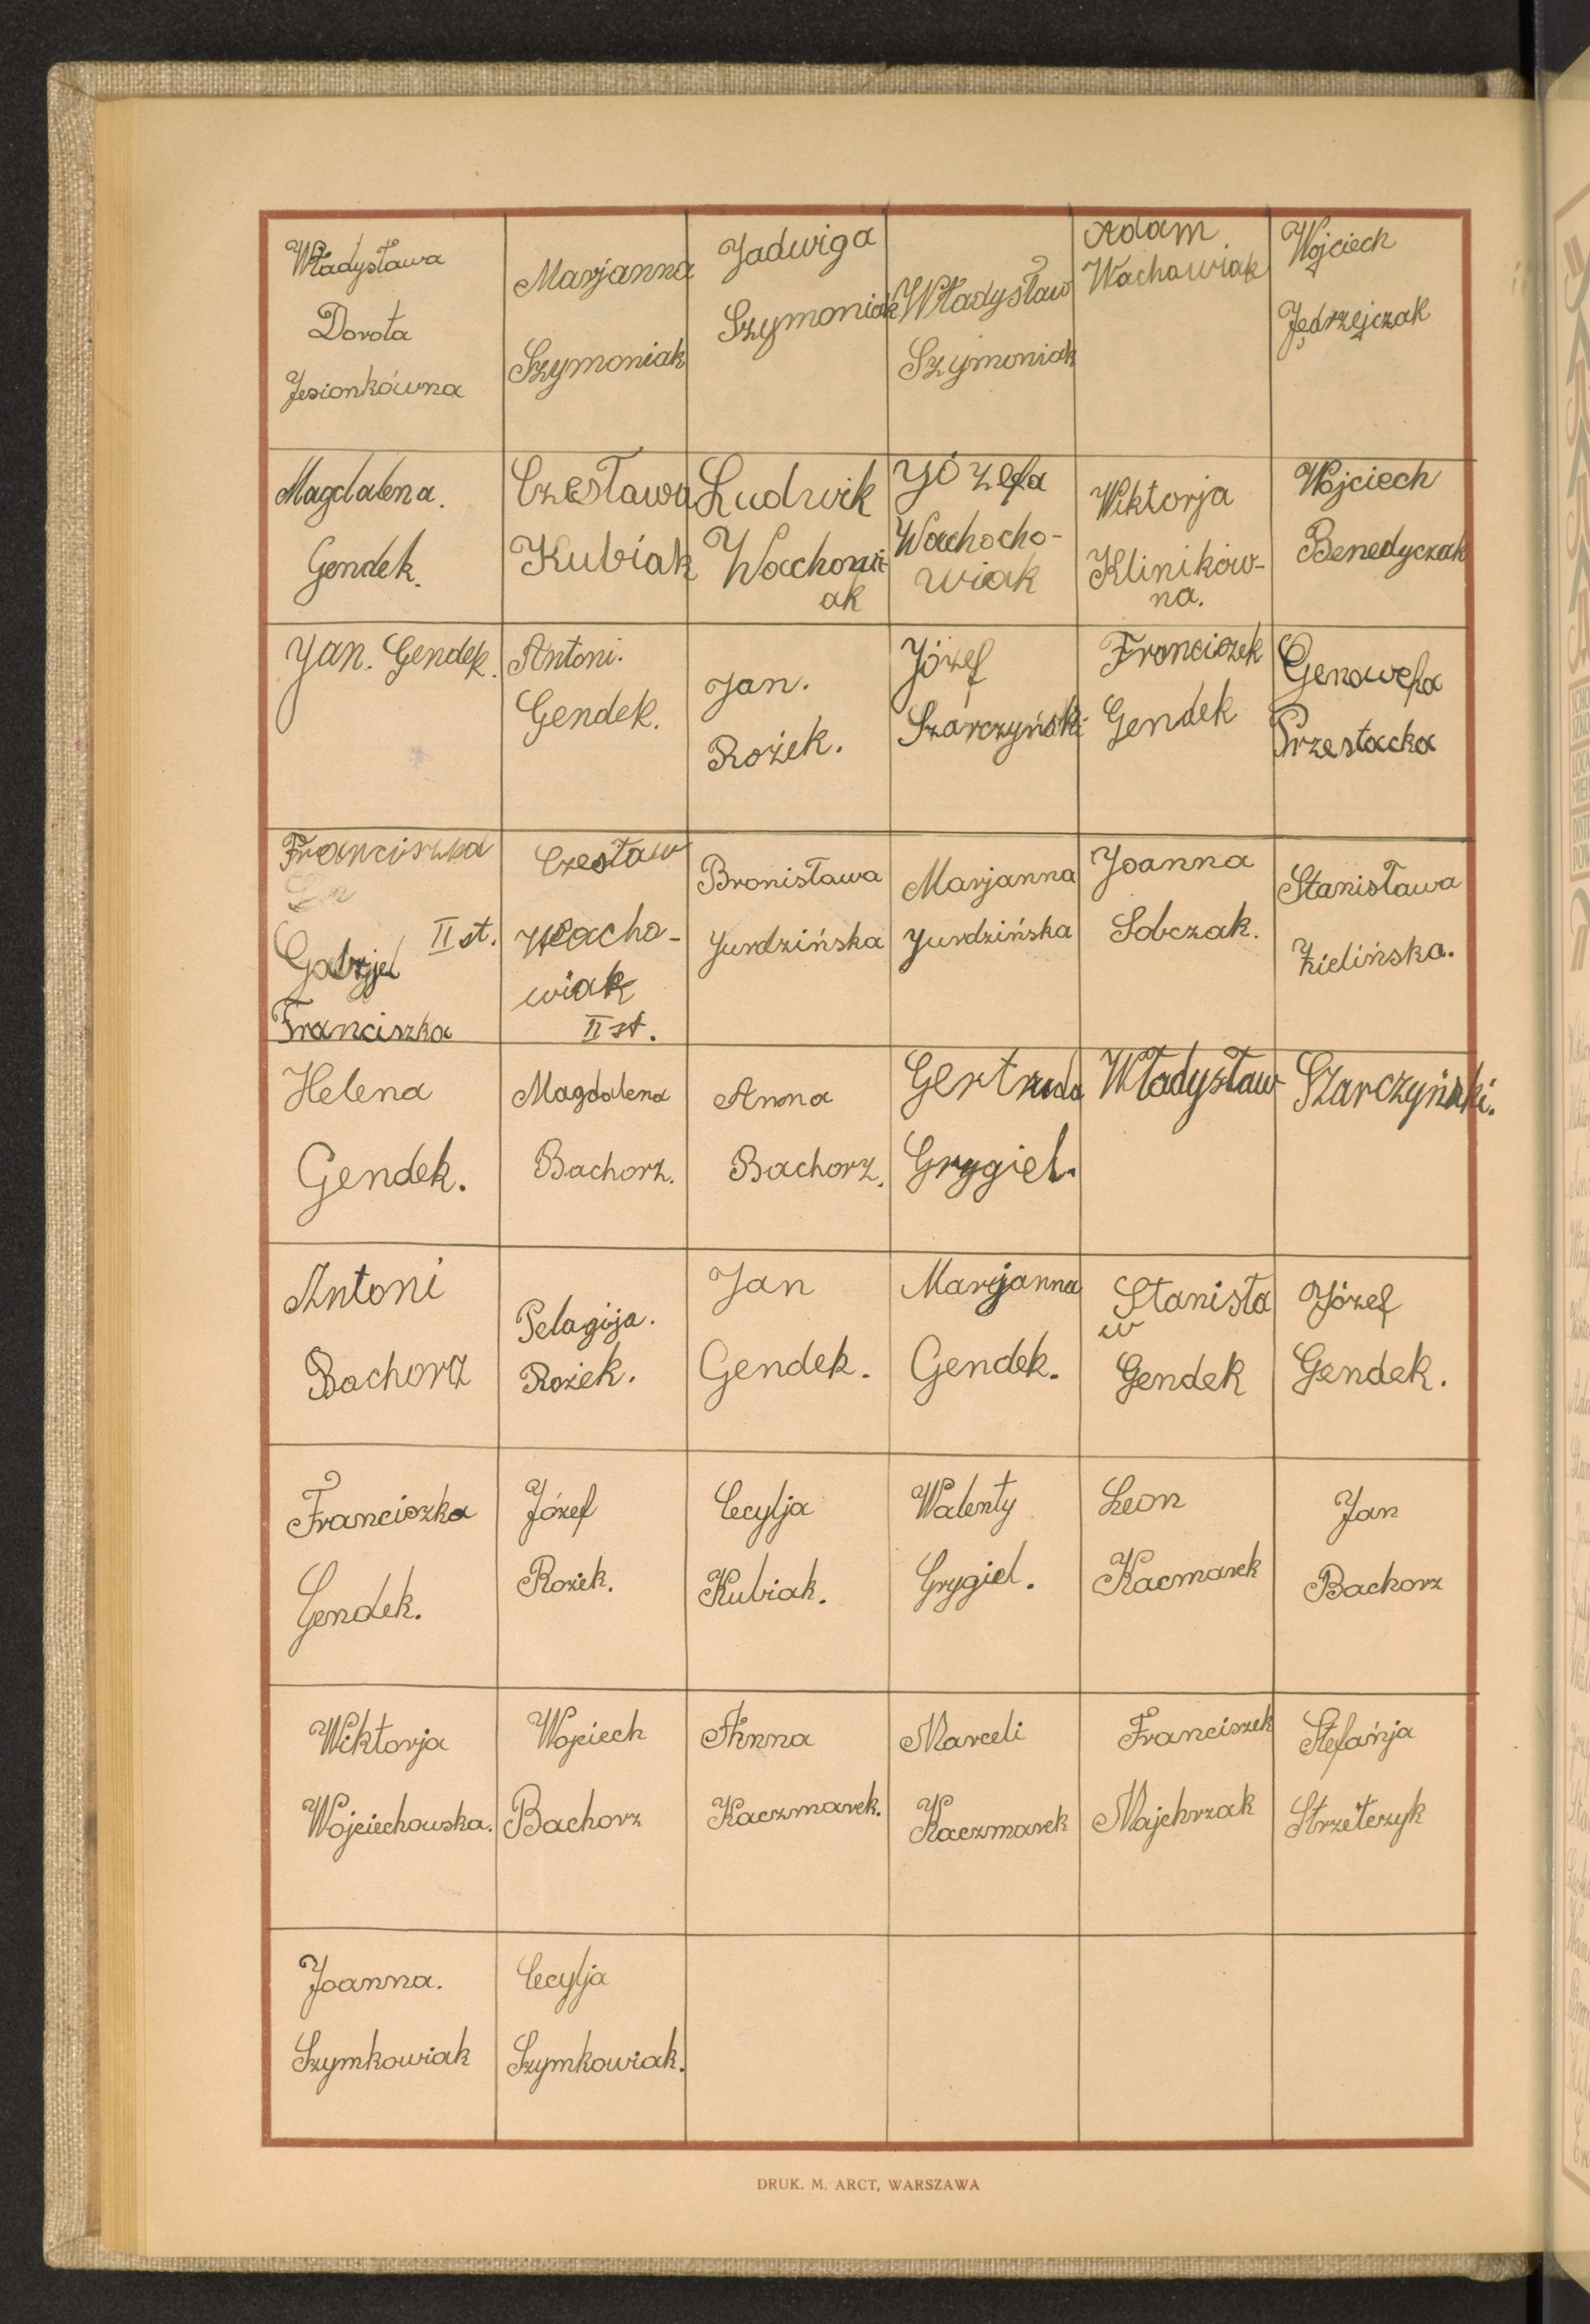 Władysława
Dorota
Jesionkówna
Marjanna
Szymoniak
Jadwiga
Szymoniak
Władysław
Szymoniak
Adam
Wachowiak
Wojciech
Jędrzejczak
Magdalena.
Gendek.
Czesława
Kubiak
Ludwik
Wachowi-
ak
Józefa
Wachocho-
wiak
Wiktorja
Kliników-
na.
Wojciech
Benedyczak
Jan. Gendek.
Antoni.
Gendek.
Jan.
Rożek.
Józef
Szarczyński
Franciszek
Gendek
Genowefa
Przestacka
Franciszka
II st.
Gabrjel
Franciszka
Czesław
Wacho-
wiak
II st.
Bronisława
Jurdzińska
Marjanna
Jurdzińska
Joanna
Sobczak.
Stanisława
Zielińska.
Helena
Gendek.
Magdalena
Bachorz.
Anna
Bachorz.
Gertruda
Grygiel.
Władysław
Szarczyński.
Antoni
Bachorz
Pelagija.
Rożek.
Jan
Gendek.
Marijanna
Gendek.
Stanisła
w
Gendek
Józef
Gendek.
Franciszka
Gendek.
Józef
Rożek.
Cecylja
Kubiak.
Walenty
Grygiel.
Leon
Kacmarek
Jan
Bachorz
Wiktorja
Wojciechowska.
Wojciech
Bachorz
Anna
Kaczmarek.
Marceli
Kaczmarek
Franciszek
Majchrzak
Stefańja
Strzetczyk
Joanna.
Szymkowiak
Cecylja
Szymkowiak.
DRUK. M. ARCT, WARSZAWA